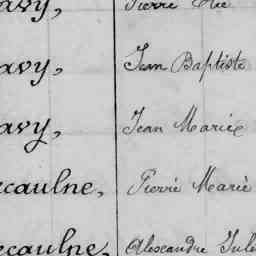 avy, Pierre Elie
avy, Jean Baptiste
avy, Jean Marie
ecaulne, Pierré Marie
ecaulne, Alexandre Jule